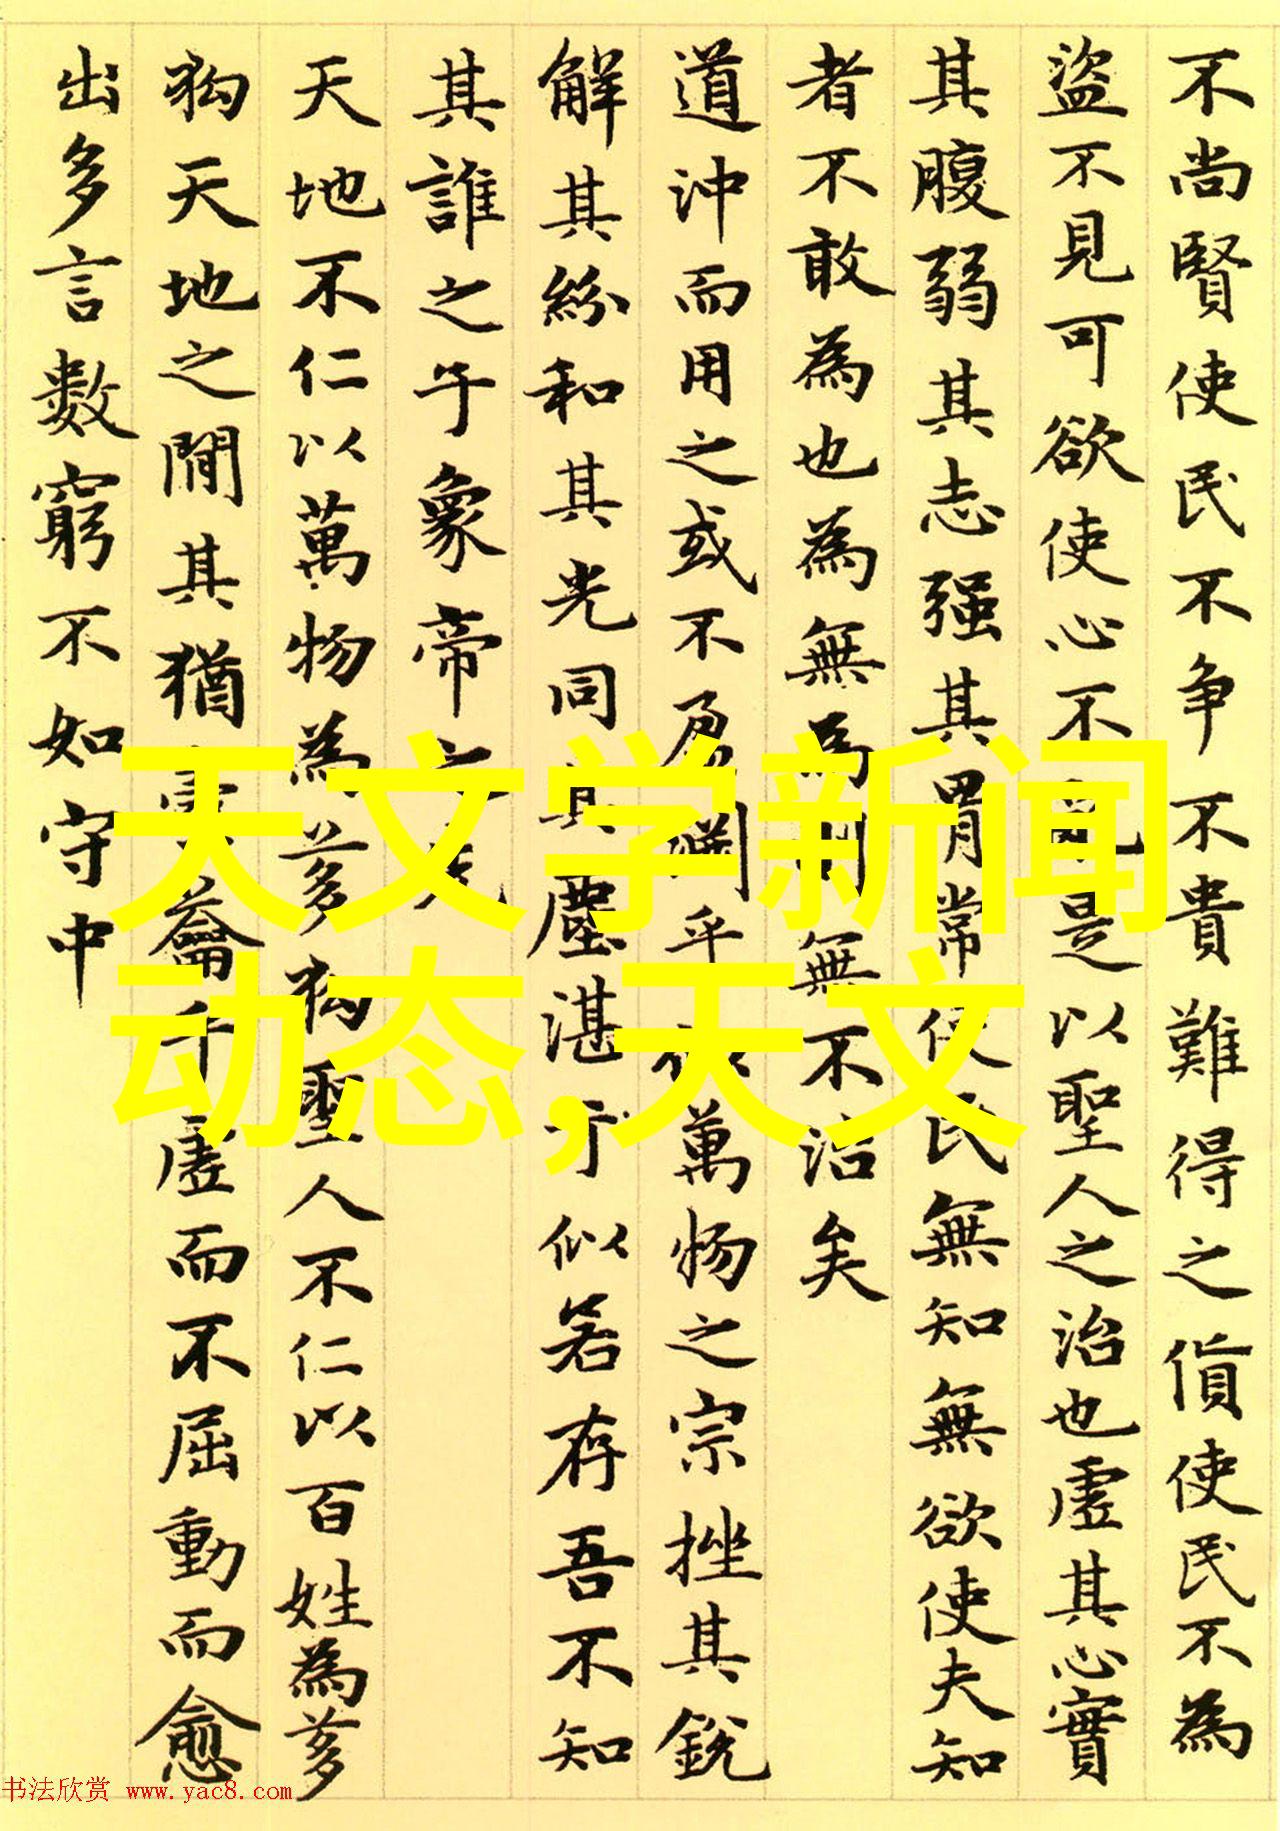 不尚賢使民不争不貴難得之貨使民不為
盜不見可欲使心不亂是以聖人之治也虛其心實
其腹弱其志强其胃常使民無知無欲使夫知
者不敢為也為無為則無不治矣
道沖而用之或不盈淵乎似萬物之宗挫其銳
解其紛和其光同其塵湛兮似若存吾不知
其誰之子象帝之先
天地不仁以萬物為芻狗聖人不仁以百姓為芻
狗天地之間其猶橐籥乎虛而不屈動而愈
出多言數窮不如守中
天文学新闻
动态,天文
书法欣赏 www.yac8.com